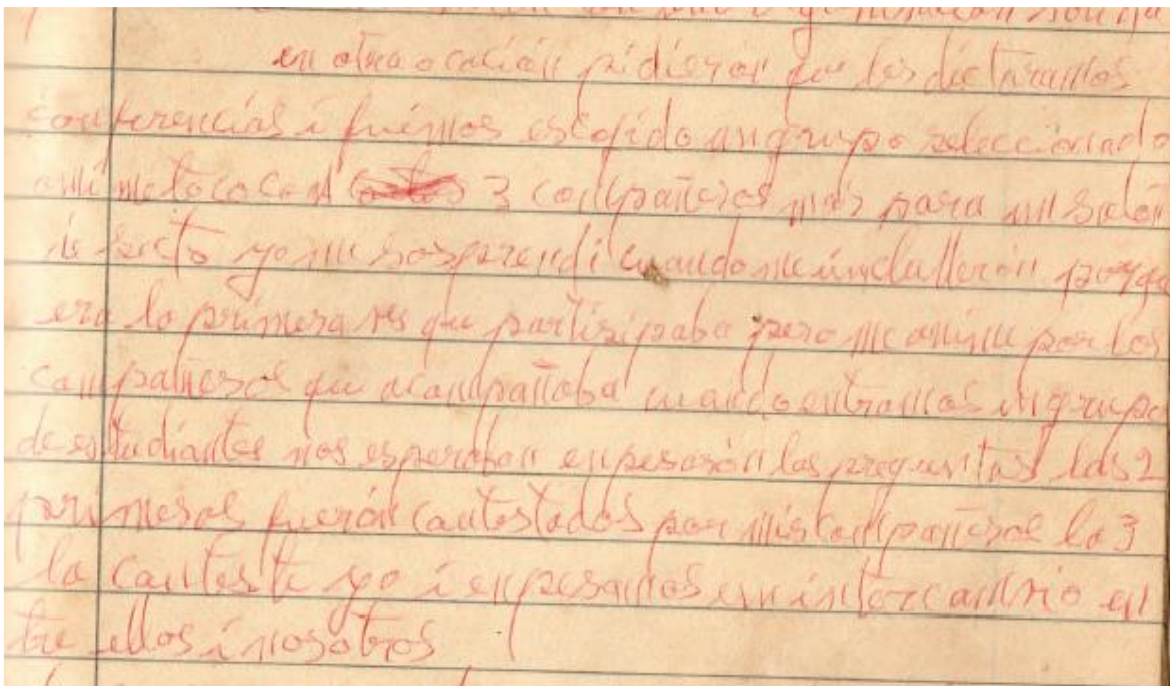 en otra ocación pidierón que les dictaramos
conferencias i fuimos escojido un grupo seleccionado
a mi me toco con 3 compañeros mas para un salón
yo me sosprendi cuando me inclullerón porque
era la primera ves que partisipaba pero me anime por los
compañeros que acompañaba cuando entramos un grupo
de estudiantes nos esperaban enpesarón las preguntas las 2
primeras fuerón contestados por mis compañeros la 3
la conteste yo i enpesamos un intercambio en
tre ellos i nosotros